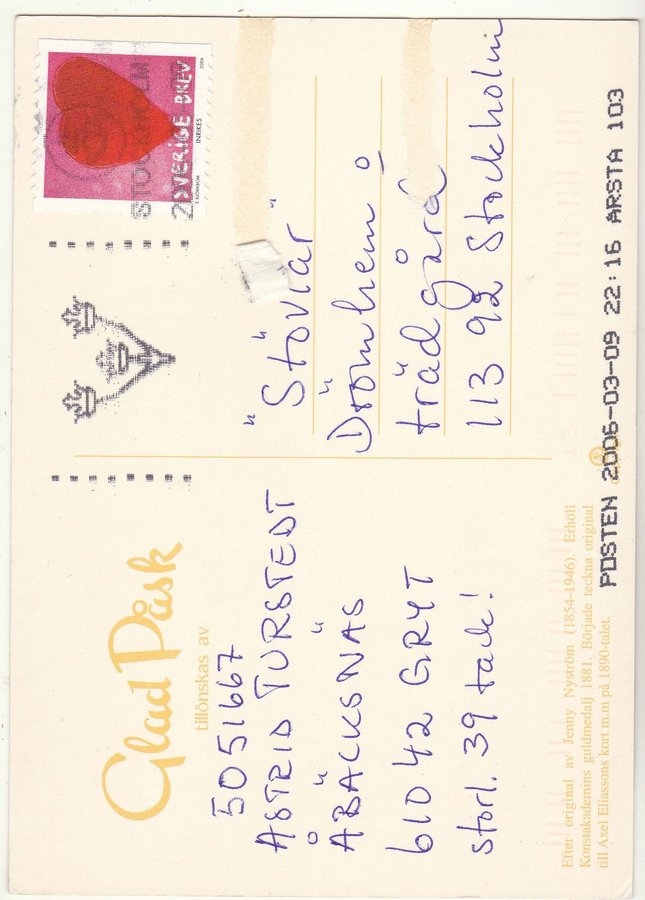 Glad Påsk
tillönskas av
5051667
ASTRID TURSTEDT
ÅBÄCKSNÄS
610 42 GRYT
storl. 39 tack!
Efter original av Jenny Nyström (1854-1946). Erhöll
Konstakademins guldmedalj 1881. Började teckna original
till Axel Eliassons kort m.m på 1890-talet.
SVERIGE BREV
INRIKES
2006
"Stövlar"
Drömhem o
trädgård
113 92 Stockholm
POSTEN 2006-03-09 22:16 ARSTA 103